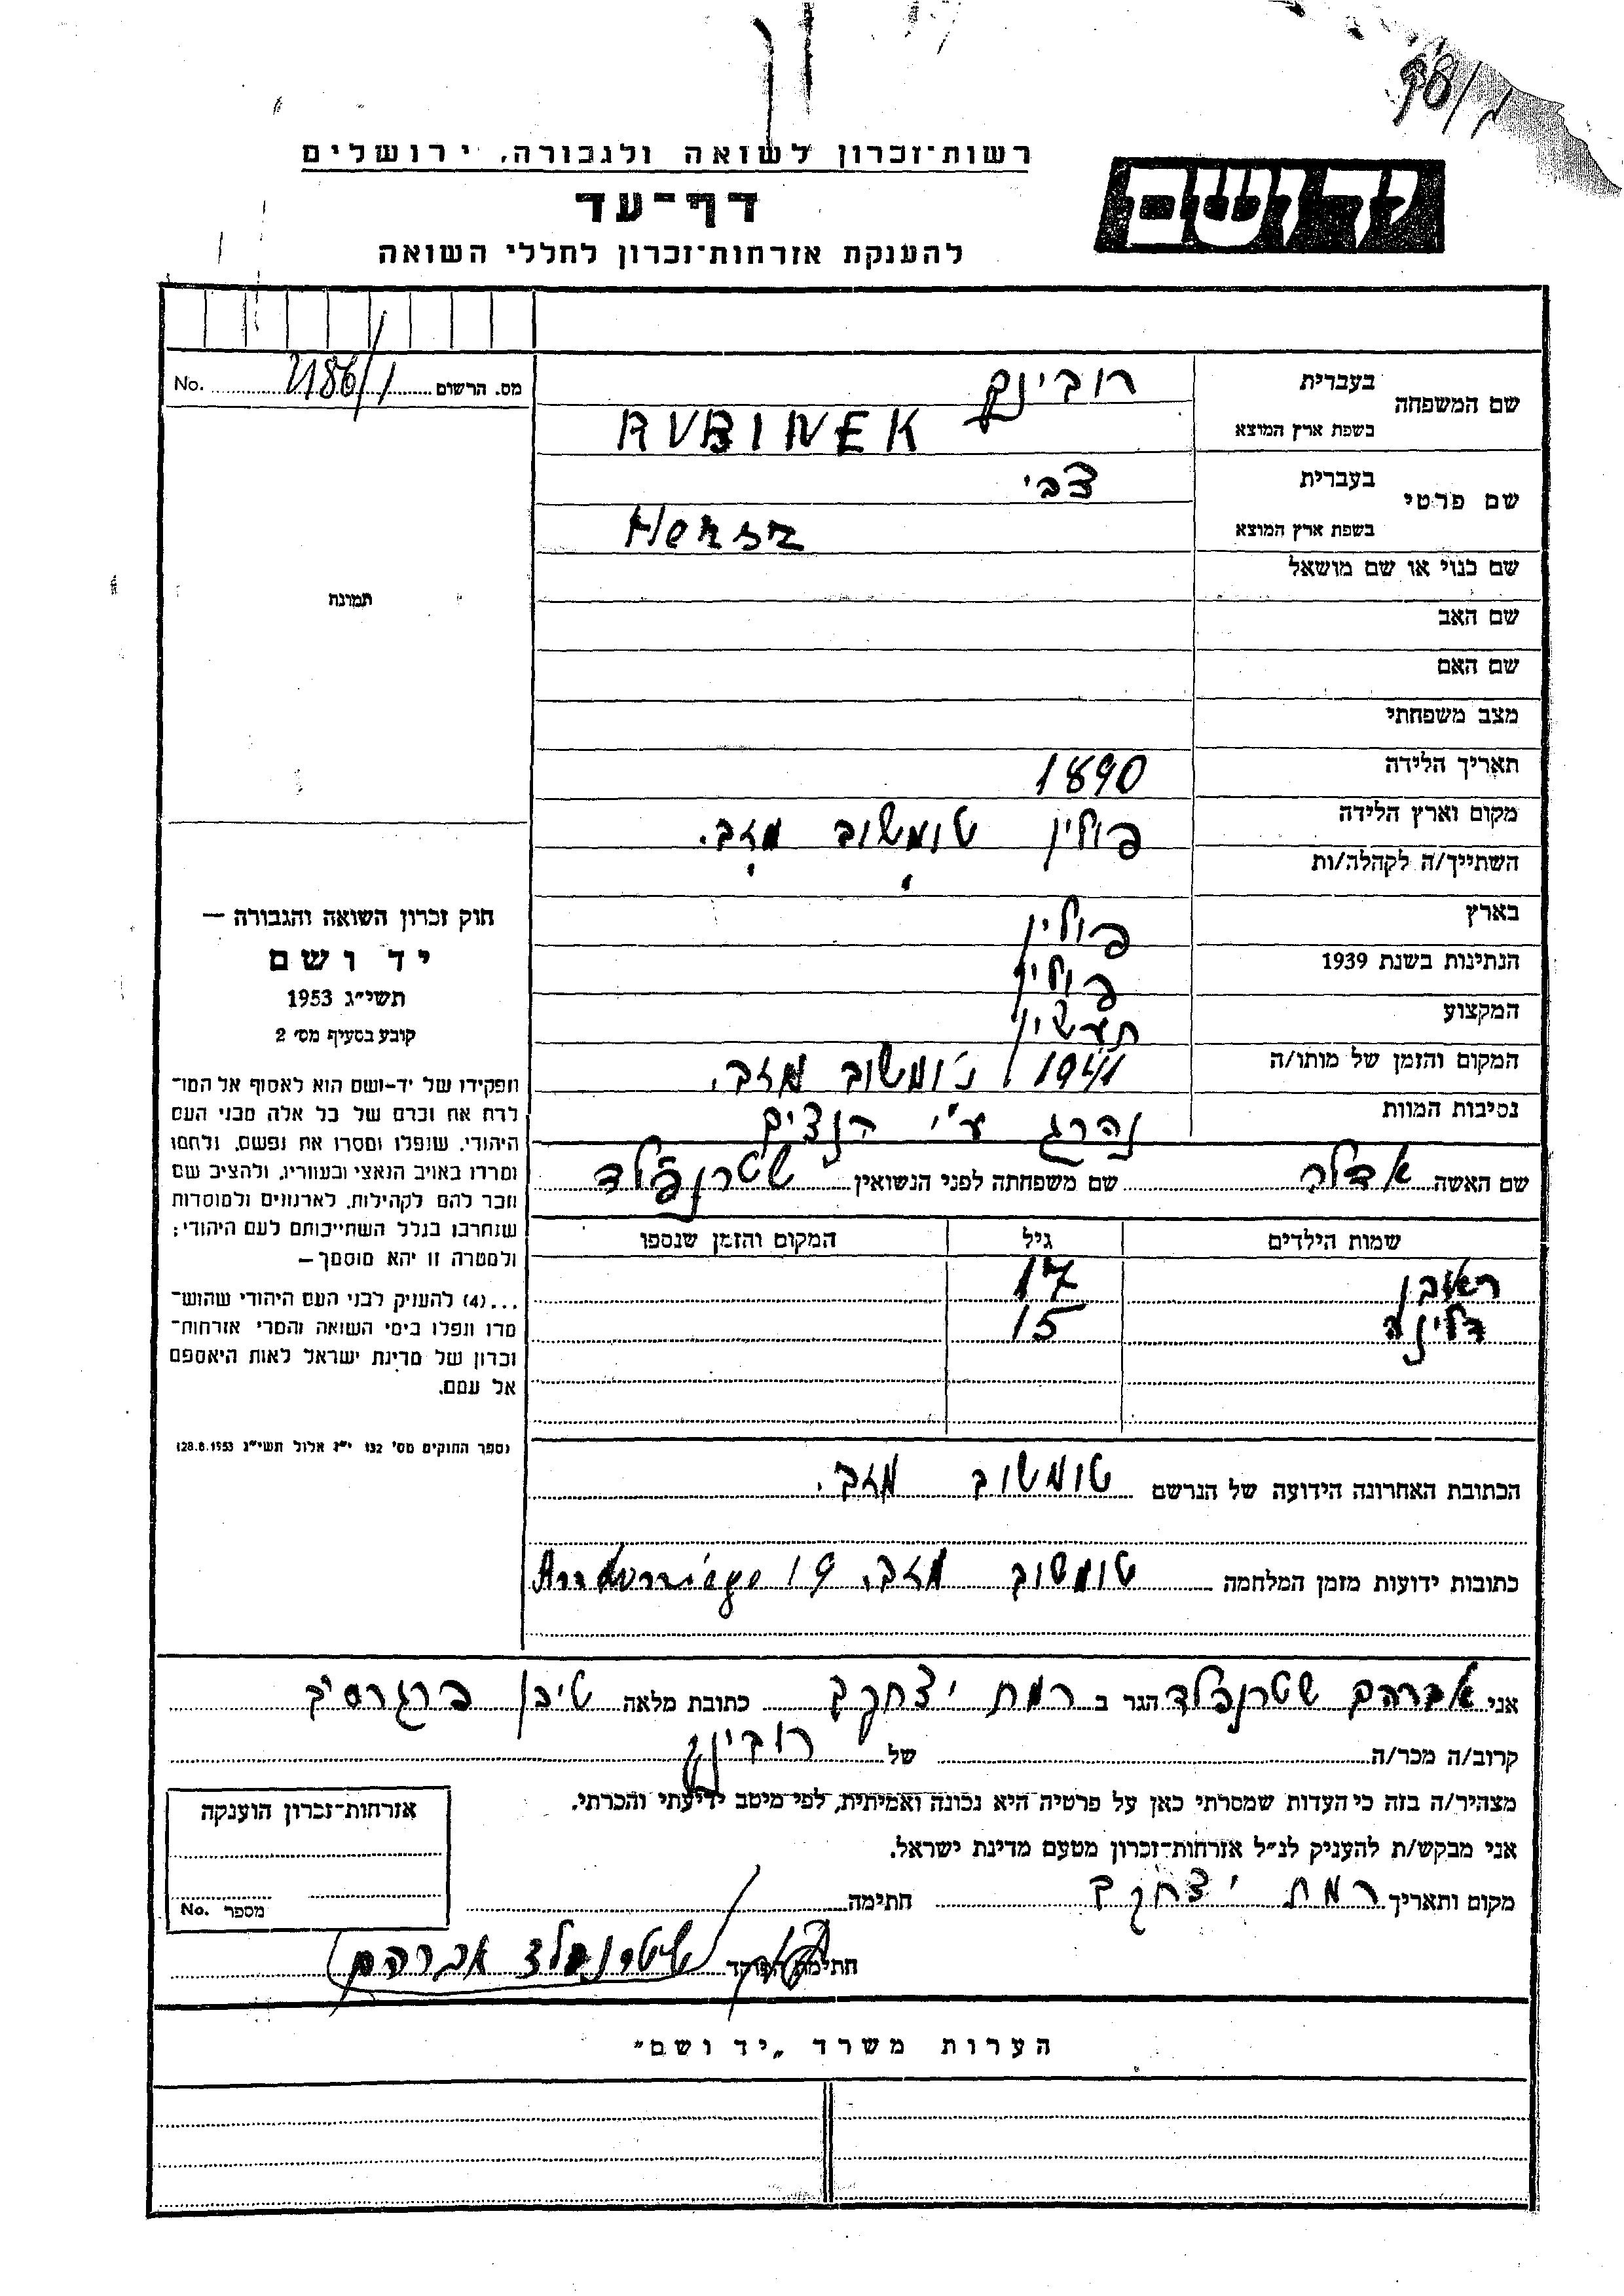 רשות־זכרון לשואה ולגבורה, ירושלים
יד ושם
דף־עד
להענקת אזרחות־זכרון לחללי השואה
מס. הרשום No.
שם המשפחה בעברית רובינק
בשפת ארץ המוצא RUBINEK
שם פרטי בעברית צבי
בשפת ארץ המוצא Hersz
שם כנוי או שם מושאל
שם האב
שם האם
מצב משפחתי
תאריך הלידה 1890
מקום וארץ הלידה פולין טומשוב מזב.
השתייך/ה לקהלה/ות
בארץ פולין
הנתינות בשנת 1939 פולין
המקצוע תעשין
המקום והזמן של מותו/ה 1941 טומשוב מזב.
נסיבות המוות נהרג ע"י הנצים
שם האשה אדלה שם משפחתה לפני הנשואין שטרנפלד
שמות הילדים גיל המקום והזמן שנספו
ראובן 17
15
הכתובת האחרונה הידועה של הנרשם טומשוב מזב.
כתובות ידועות מזמן המלחמה טומשוב מזב. 19
תמונה
חוק זכרון השואה והגבורה —
יד ושם
תשי״ג 1953
קובע בסעיף מס׳ 2
תפקידו של יד-ושם הוא לאסוף אל המו־
לדת את זכרם של כל אלה מבני העם
היהודי, שנפלו ומסרו את נפשם, נלחמו
ומרדו באויב הנאצי ובעוזריו, ולהציב שם
וזכר להם לקהילות, לארגונים ולמוסדות
שנחרבו בגלל השתייכותם לעם היהודי;
ולמטרה זו יהא מוסמך —
...(4) להעניק לבני העם היהודי שהוש־
מדו ונפלו בימי השואה והמרי אזרחות־
זכרון של מדינת ישראל לאות היאספם
אל עמם.
(ספר החוקים מס׳ 132 י״ז אלול תשי״ג 28.8.1953)
אני אברהם שטרנפלד הגר ב רמת יצחק כתובת מלאה
קרוב/ה מכר/ה של רובינק
מצהיר/ה בזה כי העדות שמסרתי כאן על פרטיה היא נכונה ואמיתית, לפי מיטב ידיעתי והכרתי.
אני מבקש/ת להעניק לנ״ל אזרחות־זכרון מטעם מדינת ישראל.
מקום ותאריך רמת יצחק חתימה
חתימת הפוקד שטרנפלד אברהם
אזרחות־זכרון הוענקה
מספר No.
הערות משרד „יד ושם״